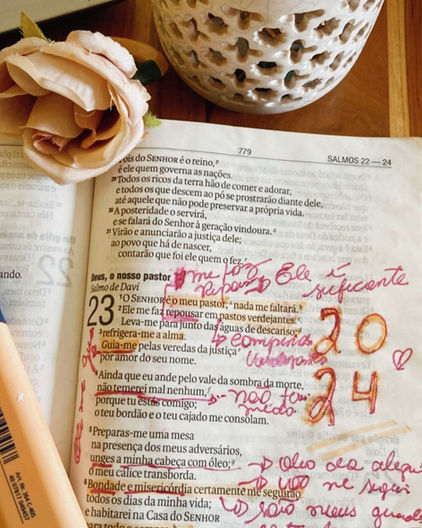 779
SALMOS 22 — 24
pois do SENHOR é o reino,
é ele quem governa as nações.
29 Todos os ricos da terra hão de comer e adorar,
e todos os que descem ao pó se prostrarão diante dele,
até aquele que não pode preservar a própria vida.
30 A posteridade o servirá,
e se falará do Senhor à geração vindoura.
31 Virão e anunciarão a justiça dele;
ao povo que há de nascer,
contarão que foi ele quem o fez.
ando.
Deus, o nosso pastor
me faz repousar
Ele é suficiente
Salmo de Davi
23 1 O SENHOR é o meu pastor; nada me faltará.
2 Ele me faz repousar em pastos verdejantes.
Leva-me para junto das águas de descanso;
3 refrigera-me a alma.
campinas verdejantes
Guia-me pelas veredas da justiça
por amor do seu nome.
2024
4 Ainda que eu ande pelo vale da sombra da morte,
não temerei mal nenhum,
não tem medo
porque tu estás comigo;
o teu bordão e o teu cajado me consolam.
5 Preparas-me uma mesa
na presença dos meus adversários,
unges a minha cabeça com óleo;
óleo da
o meu cálice transborda.
6 Bondade e misericórdia certamente me seguirão
vão me seguir
todos os dias da minha vida;
são meus
e habitarei na Casa do SENHOR
para todo o sempre.